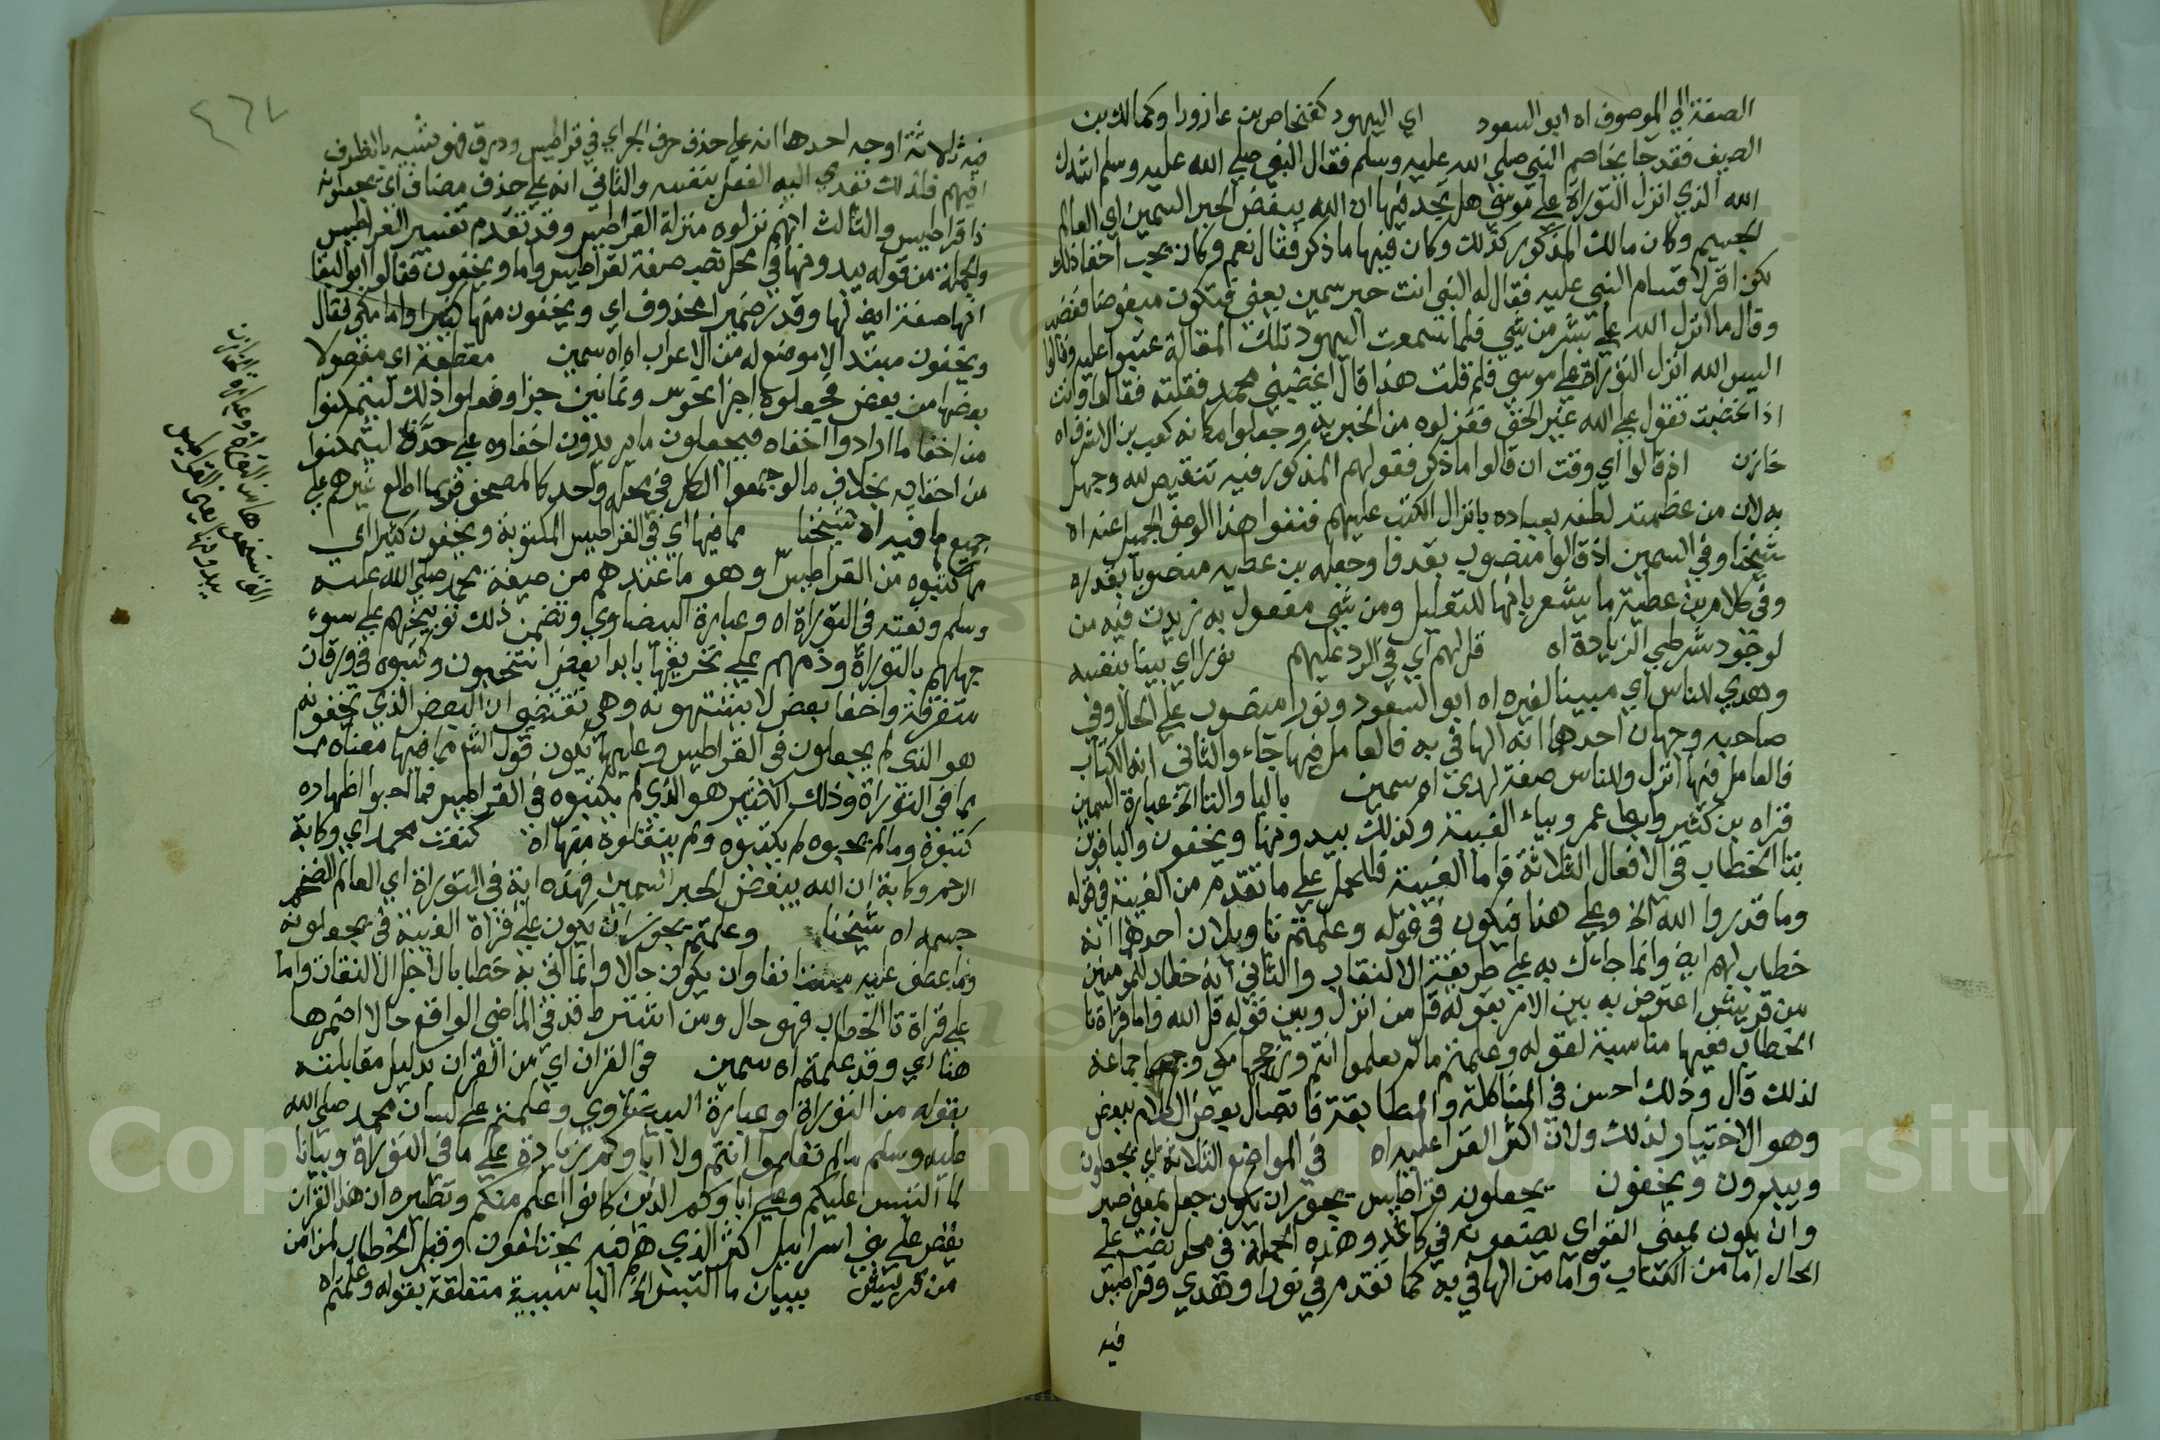 الصفة الي الموصوف اه ابو السعود اي اليهود كفنحاص بن عازورا وكمالك بن
الصيف فقد جا يخاصم النبي صلي الله عليه وسلم فقال النبي صلي الله عليه وسلم انشدك
الله الذي انزل التوراة علي موسي هل تجد فيها ان الله يبغض الحبر السمين اي العالم
الجسيم وكان مالك المذكور كذلك وكان فيها ما ذكر فقال نعم وكان يحب اخفا ذلك
لكن اقر لاقسام النبي عليه فقال له النبي انت حبر سمين يعني فتكون مبغوضا فغضب
وقال ما انزل الله علي بشر من شي فلما سمعت اليهود تلك المقالة عتبوا عليه وقالوا
اليس الله انزل التوراة علي موسي فلم قلت هذا قال اغضبني محمد فقلته فقالوا وانت
اذا غضبت تقول علي الله غير الحق فعزلوه من الحبرية وجعلوا مكانه كعب بن الاشرف اه
خازن اذ قالوا اي وقت ان قالوا ما ذكر فقولهم المذكور فيه تنقيص لله وجهل
به لان من عظمته لطفه بعباده بانزال الكتب عليهم فنفوا هذا الوصف الجميل عنه اه
شيخنا وفي السمين اذ قالوا منصوب بقدروا وجعله بن عطية منصوبا بقدره
وفي كلام بن عطية ما يشعر بانها للتعليل ومن شي مفعول به زيدت فيه من
لوجود شرطي الزيادة اه قل لهم اي في الرد عليهم نورا اي بينا بنفسه
وهدي للناس اي مبينا لغيره اه ابو السعود ونورا منصوب علي الحال وفي
صاحبه وجهان احدهما انه الها في به فالعامل فيها جاء والثاني انه الكتاب
فالعامل فيها انزل وللناس صفة لهدي اه سمين باليا والتا الخ عبارة السمين
قراه بن كثير وابو عمرو بياء الغيبة وكذلك يبدونها ويخفون والباقون
بتا الخطاب في الافعال الثلاثة فاما الغيبة فللحمل علي ما تقدم من الغيبة في قوله
وما قدروا الله الخ وعلي هذا فيكون في قوله وعلمتم تاويلان احدهما انه
خطاب لهم ايضا وانما جاءك به علي طريقة الالتفات والثاني انه خطاب للمومنين
من قريش اعترض به بين الامر بقوله قل من انزل وبين قوله قل الله واما قراة تا
الخطاب ففيها مناسبة لقوله وعلمتم مالم تعلموا انتم ورجحها مكي وجماعة
لذلك قال وذلك احسن في المشاكلة والمطابقة فاتصال بعض الكلام ببعض
وهو الاختيار لذلك ولان اكثر القرا عليه اه في المواضع الثلاثة اي يجعلون
ويبدون ويخفون يجعلونه قراطيس يجوز ان يكون جعل بمعني صير
وان يكون بمعني القي اي يضعونه في كاغد وهذه الجملة في محل نصب علي
الحال اما من الكتاب واما من الها في به كما تقدم في نورا وهدي وقراطيس
فيه
٤٦٧
فيه ثلاثة اوجه احدها انه علي حذف حرف الجر اي في قراطيس وورق فهو شبيه بالظرف
المبهم فلذلك تعدي اليه الفعل بنفسه والثاني انه علي حذف مضاف اي يجعلونه
ذا قراطيس والثالث انهم نزلوه منزلة القراطيس وقد تقدم تفسير القراطيس
والجملة من قوله يبدونها في محل نصب صفة لقراطيس واما ويخفون فقالوا ابو البقا
انها صفة ايضا لها وقدر ضمير محذوف اي ويخفون منها كثيرا واما مكي فقال
ويخفون مبتدا لا موضع له من الاعراب اه اه سمين مقطعة اي مفصولا
بعضها من بعض فجعلوه اجزا نحو نيف وثمانين جزا وفعلوا ذلك ليتمكنوا
من اخفا ما ارادوا اخفاه فيجعلون ما يريدون اخفاوه علي حدة ليتمكنوا
من اخفايه بخلاف ما لو جمعوا الكل في محل واحد كالمصحف فربما اطلع غيرهم علي
جميع ما فيه اه شيخنا مما فيها اي في القراطيس المكتوبة ويخفون كثيرا اي
مما كتبوه من القراطيس وهو ما عندهم من صفة محمد صلي الله عليه
وسلم ونعته في التوراة اه وعبارة البيضاوي وتضمن ذلك توبيخهم علي سوء
جهلهم بالتوراة وذمهم علي تحريفها بابدا بعض انتخبوه وكتبوه في ورقات
متفرقة واخفا بعض لا يشتهونه وهي تقتضي ان البعض الذي يخفونه
هو الذي لم يجعلون في القراطيس وعليها يكون قول الشرح مما فيها معناه
مما في التوراة وذلك الكثير هو الذي لم يكتبوه في القراطيس فما احبوا اظهاره
كتبوه وما لم يحبوه لم يكتبوه ولم ينقلوه منها اه كنعت محمد اي وكاية
الرجم وكاية ان الله يبغض الحبر السمين فهذه اية في التوراة اي العالم الضخم
جسمه اه شيخنا وعلمتم يجوز ان يكون علي قراة الغيبة في يجعلونه
وما عطف عليه مستانفا وان يكون حالا وانما اتي به خطابا لاجل الالتفات واما
علي قراة تا الخطاب فهو حال ومن اشترط قد في الماضي الواقع حالا اضمرها
هنا اي وقد علمتم اه سمين في القران اي من القران بدليل مقابلته
بقوله من التوراة وعبارة البيضاوي وعلمتم علي لسان محمد صلي الله
عليه وسلم مالم تعلموا انتم ولا اباوكم زيادة علي ما في التوراة وبيانا
لما التبس عليكم وعلي اباوكم الذين كانوا اعلم منكم ونظيره ان هذا القران
يقص علي بني اسرائيل اكثر الذي هم فيه يختلفون وقيل الخطاب لمن امن
من قريش ببيان ما التبس الخ البا سببية متعلقة بقوله وعلمتم اه